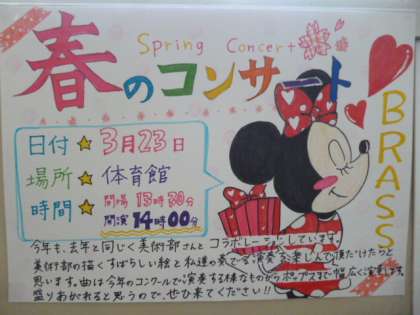 Spring Concert
春のコンサート
BRASS
日付☆3月23日
場所☆体育館
時間☆開場13時30分
開演14時00分
今年も、去年と同じく美術部さんとコラボレーションしています。
美術部の描くすばらしい絵と私達の奏でる演奏を楽しんで頂けたらと
思います。曲は今年のコンクールで演奏する様なものからポップスまで幅広く演奏します。
盛りあがれると思うので、ぜひ来てください!!